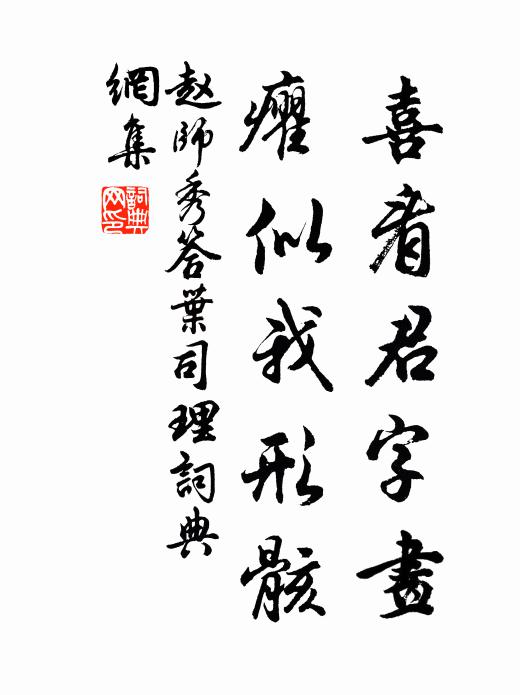 喜看君字畫
癯似我形骸
赵師秀答葉司理詞典
網集
詞典網印